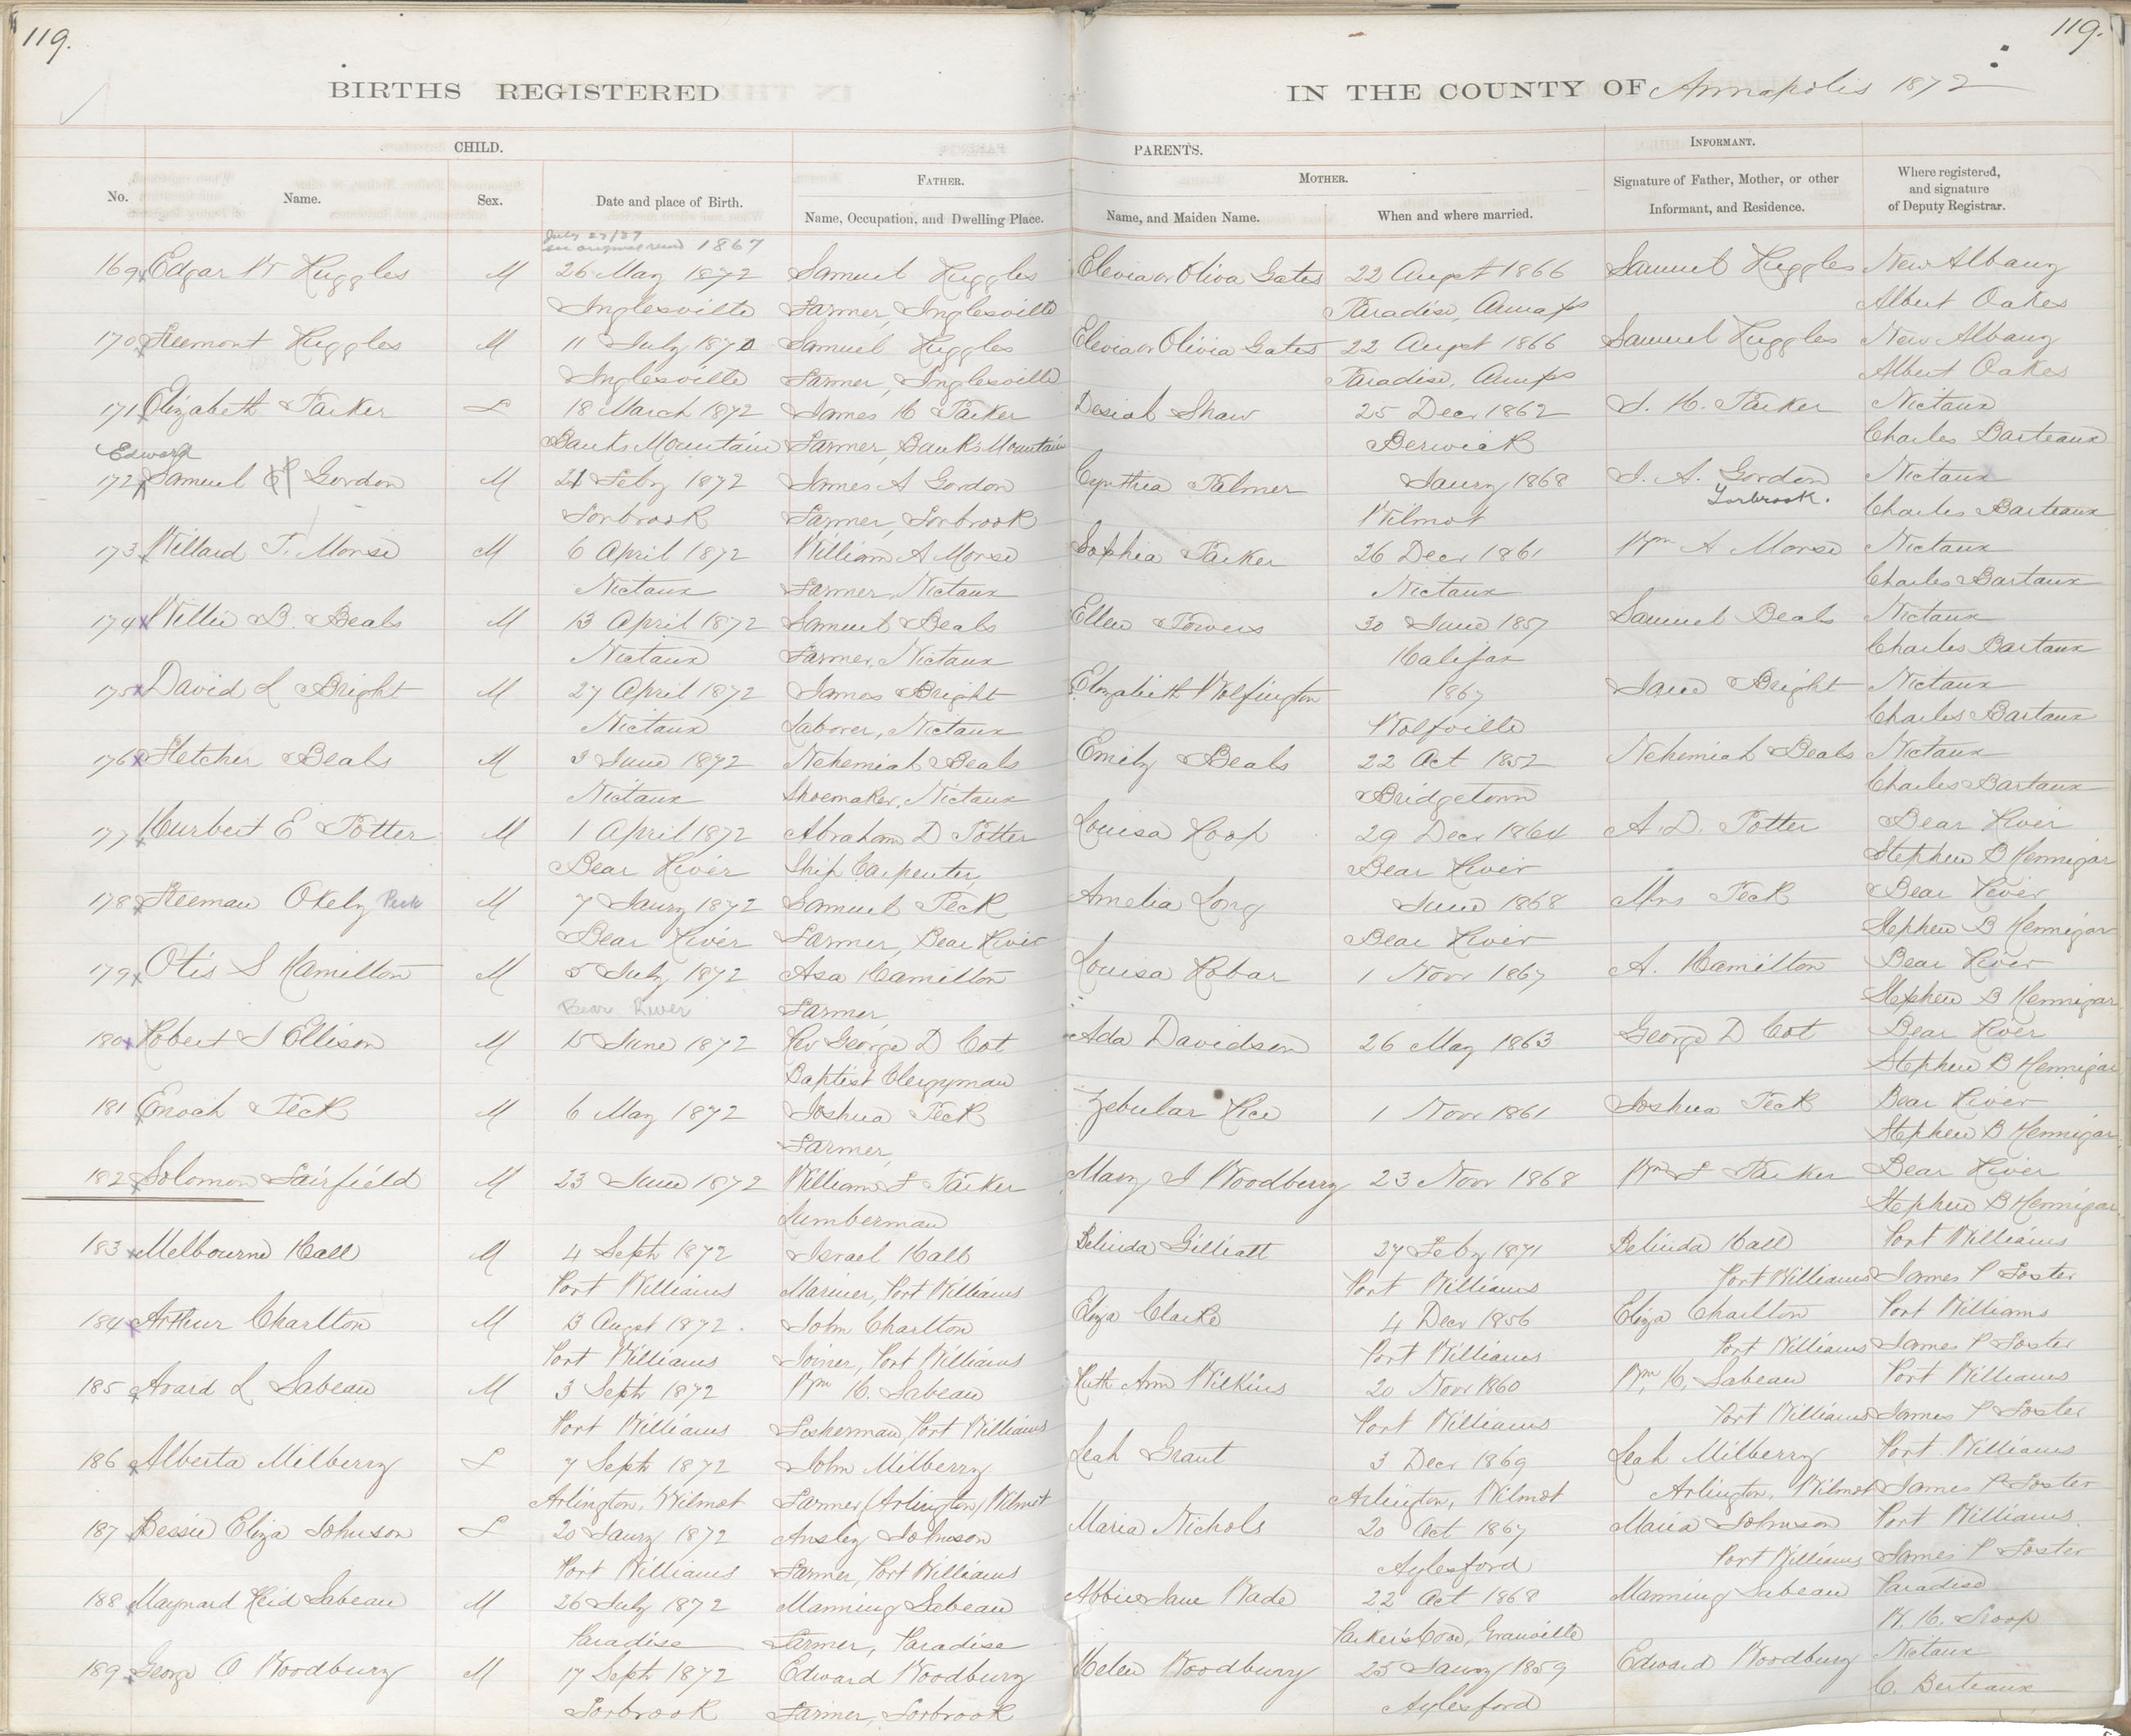 119.
119.
BIRTHS REGISTERED
IN THE COUNTY OF Annapolis 1872
CHILD.
PARENTS.
INFORMANT.
No.
Name.
Sex.
Date and place of Birth.
FATHER.
Name, Occupation, and Dwelling Place.
MOTHER.
Name, and Maiden Name.
When and where married.
Signature of Father, Mother, or other
Informant, and Residence.
Where registered,
and signature
of Deputy Registrar.
July 27/27
see original record 1867
169 Edgar W Ruggles M 26 May 1872 Samuel Ruggles Elevia or Oliva Gates 22 Augst 1866 Samuel Ruggles New Albany
Inglesville Farmer, Inglesville Paradise, Annaps Albert Oakes
170 Freemont Ruggles M 11 July 1870 Samuel Ruggles Elevia or Olivia Gates 22 Augst 1866 Samuel Ruggles New Albany
Inglesville Farmer, Inglesville Paradise, Annps Albert Oakes
171 Elizabeth Parker F 18 March 1872 James H Parker Desiah Shaw 25 Decr 1862 J. H. Parker Nictaux
Banks Mountain Farmer, Banks Mountain Berwick Charles Barteaux
Edward
172 Samuel Gordon M 21 Feby 1872 James A Gordon Cynthia Palmer Jany 1868 J. A. Gordon Nictaux
Torbrook Farmer, Torbrook Wilmot Torbrook. Charles Barteaux
173 Willard T. Morse M 6 April 1872 William A Morse Sophia Parker 26 Decr 1861 Wm A Morse Nictaux
Nictaux Farmer, Nictaux Nictaux Charles Bartaux
174 Willie B. Beals M 13 April 1872 Samuel Beals Ellen Powers 30 June 1857 Samuel Beals Nictaux
Nictaux Farmer, Nictaux Halifax Charles Bartaux
175 David L Bright M 27 April 1872 James Bright Elizabeth Wolfington 1867 Jane Bright Nictaux
Nictaux Laborer, Nictaux Wolfville Charles Bartaux
176 Fletcher Beals M 3 June 1872 Nehemiah Beals Emily Beals 22 Oct 1852 Nehemiah Beals Nictaux
Nictaux Shoemaker, Nictaux Bridgetown Charles Bartaux
177 Hurbert E Potter M 1 April 1872 Abraham D Potter Louisa Roop 29 Decr 1864 A. D. Potter Bear River
Bear River Ship Carpenter, Bear River Stephen B Hennigar
178 Freeman Okely Peck M 7 Jany 1872 Samuel Peck Amelia Long June 1868 Mrs Peck Bear River
Bear River Farmer, Bear River Bear River Stephen B Hennigar
179 Otis S Hamilton M 5 July 1872 Asa Hamilton Louisa Robar 1 Novr 1867 A. Hamilton Bear River
Bear River Farmer, Stephen B Hennigar
180 Robert J Ellison M 15 June 1872 Rev George D Cot Ada Davidson 26 May 1863 George D Cot Bear River
Baptist Clergyman Stephen B Hennigar
181 Enoch Peck M 6 May 1872 Joshua Peck Zebular Rice 1 Novr 1861 Joshua Peck Bear River
Farmer, Stephen B Hennigar
182 Solomon Fairfield M 23 June 1872 William F Parker Mary J Woodberry 23 Novr 1868 Wm F Parker Bear River
Lumberman Stephen B Hennigar
183 Melbourne Hall M 4 Septr 1872 Israel Hall Belinda Gilliatt 27 Feby 1871 Belinda Hall Port Williams
Port Williams Mariner, Port Williams Port Williams Port Williams James P Foster
184 Arthur Charlton M 13 Augst 1872. John Charlton Eliza Clarke 4 Decr 1856 Eliza Charlton Port Williams
Port Williams Joiner, Port Williams Port Williams Port Williams James P Foster
185 Avard L Sabean M 3 Septr 1872 Wm H. Sabean Ruth Ann Wilkins 20 Novr 1860 Wm H. Sabean Port Williams
Port Williams Fisherman, Port Williams Port Williams Port Williams James P Foster
186 Alberta Milberry F 7 Septr 1872 John Milberry Leah Grant 3 Decr 1869 Leah Milberry Port Williams
Arlington, Wilmot Farmer (Arlington) Wilmot Arlington, Wilmot Arlington, Wilmot James P Foster
187 Bessie Eliza Johnson F 20 Jany 1872 Ansley Johnson Maria Nichols 20 Oct 1867 Maria Johnson Port Williams
Port Williams Farmer, Port Williams Aylesford Port Williams James P Foster
188 Maynard Reid Sabean M 26 July 1872 Manning Sabean Abbie Jane Wade 22 Oct 1868 Manning Sabean Paradise
Paradise Farmer, Paradise Parker's Cove, Granville Troop
189 George O Woodbury M 17 Septr 1872 Edward Woodbury Helen Woodbury 25 Jany 1859 Edward Woodbury Nictaux
Torbrook Farmer, Torbrook Aylesford C. Berteaux